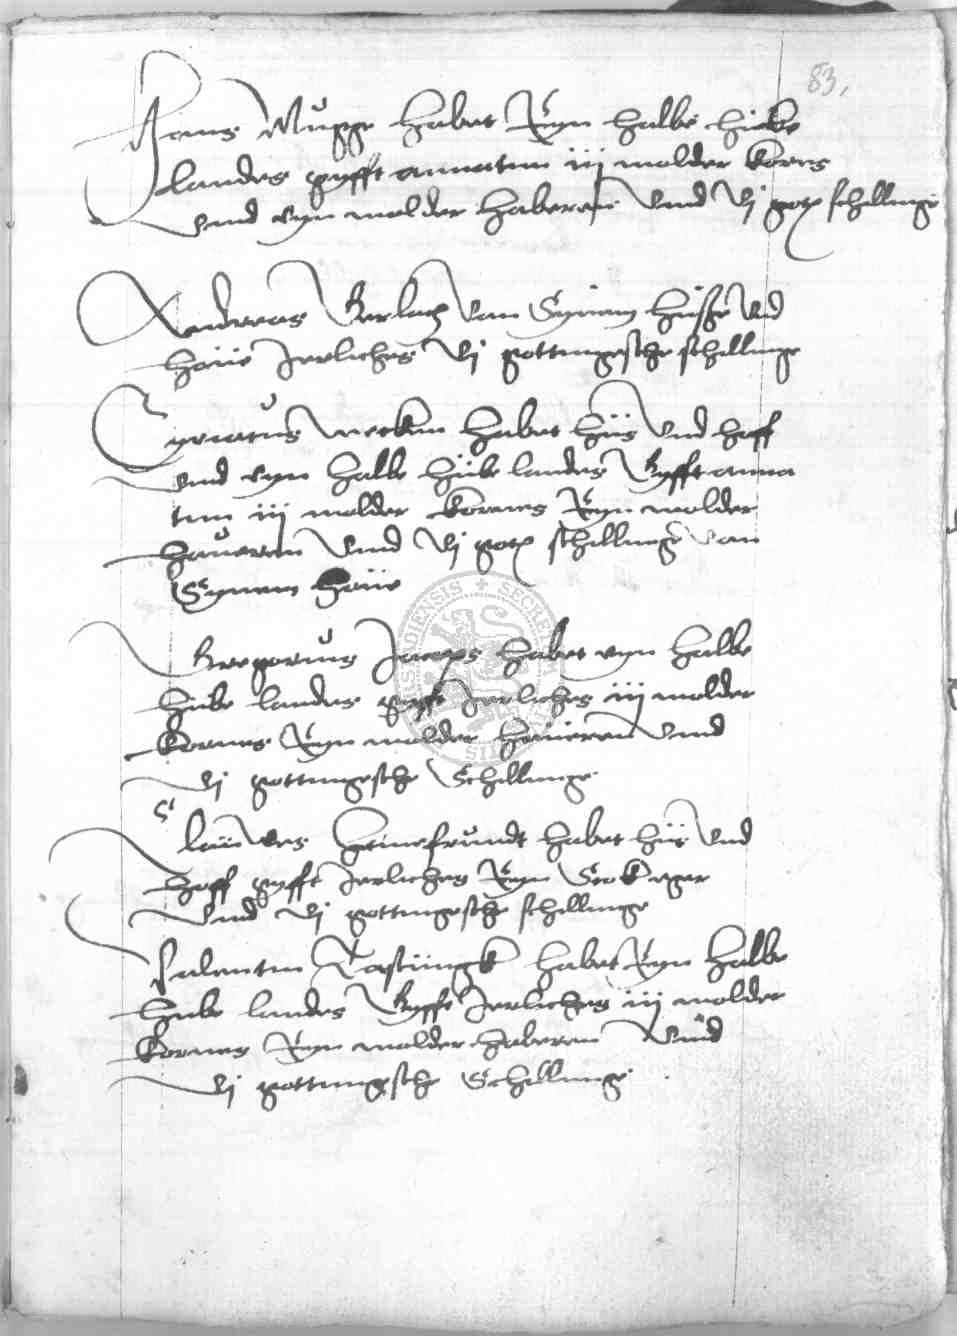 83,
Hans Mugge habet Eyn halbe hube
landes gyfft annatim iij molder korns
vnd eyn molder haberen vnd vj gotz schillinge
Andreas Gerlach van Synem huse vnd
houe Jerliches vj gottingesche schillinge
Cyriacus habet hus vnd hoff
vnd eyn halbe hube landes Gyfft anna
tim iij molder kornes Eyn molder
haueren vnd vj gotz schillinge van
Synem houe
Gregorius Jacops habet eyn halbe
hube landes gyfft Jerliches iij molder
kornes Eyn molder haueren vnd
vj gottingesche Schillinge
habet hus vnd
hoff gyfft Jerliches Eyn
vnd vj gottingesche schillinge
Valentin habet Eyn halbe
hube landes Gyfft Jerliches iij molder
kornes Eyn molder haberen vnd
vj gottingesche Schillinge